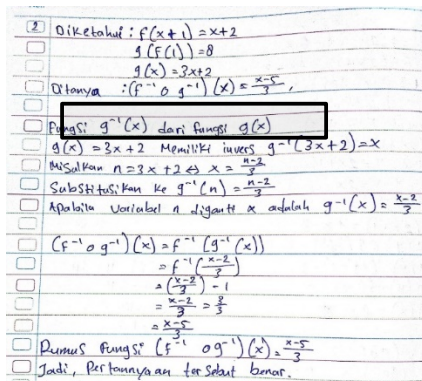 2 Diketahui : f(x+1) = x+2
g(f(1)) = 8
g(x) = 3x+2
Ditanya : (f⁻¹ o g⁻¹)(x) = x-5/3,
Fungsi g⁻¹(x) dari fungsi g(x)
g(x) = 3x+2 Memiliki invers g⁻¹(3x+2) = x
Misalkan n = 3x+2 ⇔ x = n-2/3
Substitusikan ke g⁻¹(n) = n-2/3
Apabila Variabel n diganti x adalah g⁻¹(x) = x-2/3
(f⁻¹ o g⁻¹)(x) = f⁻¹(g⁻¹(x))
= f⁻¹(x-2/3)
= (x-2/3) - 1
= x-2/3 = 3/3
= x-5/3
Rumus fungsi (f⁻¹ o g⁻¹)(x) = x-5/3
Jadi, Pertannyaan tersebut benar.